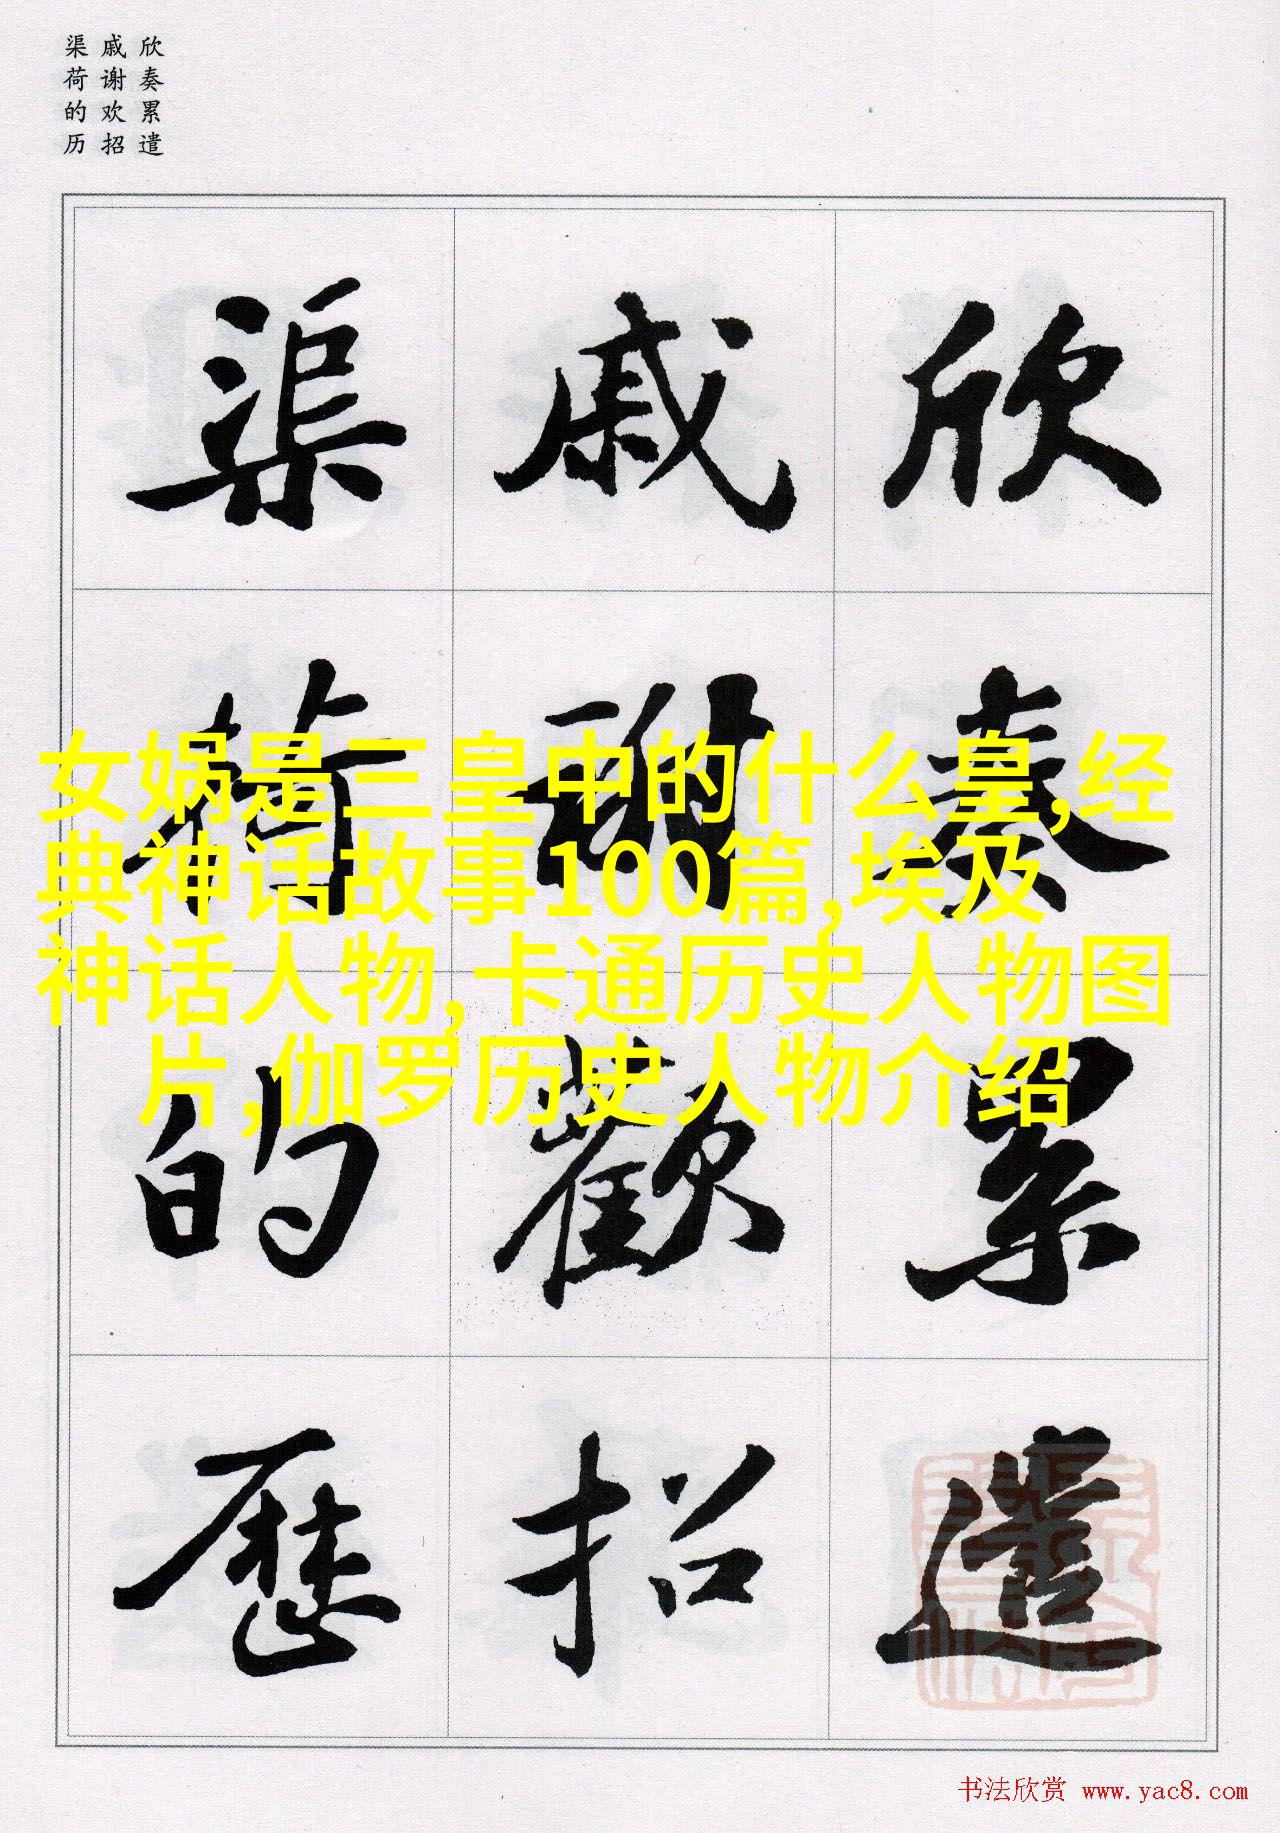 欣奏累遣
戚谢欢招
渠荷的历
欣奏累遣
戚謝歡招
渠荷的歷
女娲是三皇中的什么皇,经
典神话故事100篇,埃及
神话人物,卡通历史人物图
片,伽罗历史人物介绍
书法欣赏 www.yac8.com